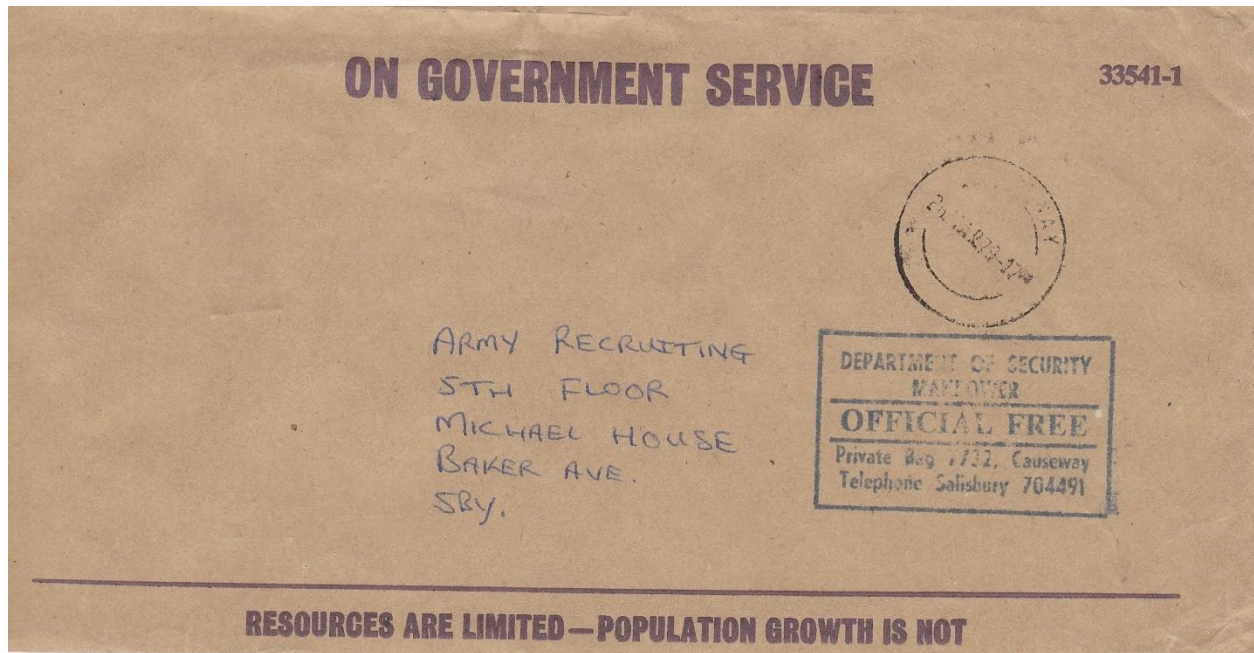 ON GOVERNMENT SERVICE
33541-1
ARMY RECRUITING
5TH FLOOR
MICHAEL HOUSE
BAKER AVE.
SBY.
DEPARTMENT OF SECURITY
MANPOWER
OFFICIAL FREE
Private Bag 7732, Causeway
Telephone Salisbury 704491
RESOURCES ARE LIMITED—POPULATION GROWTH IS NOT